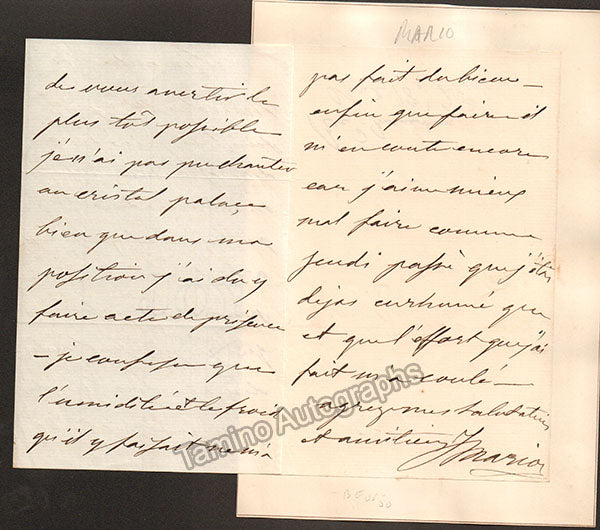 MARIO
de vous avertir le
plus tôt possible
je n'ai pas pu chanter
au cristal palace
bien que dans ma
position j'ai du y
faire acte de présence
— je confesse que
l'umidité et le froid
qu'il y faisait ne m'a
pas fait du bien —
enfin que faire il
m'en coute encore
car j'aime mieux
mal faire comme
jeudi passé que j'étais
dejas enrhumé que
et que l'effort que j'ai
fait m'a coulé —
agrez mes salutations
et amitiées Mario
Tamino Autographs